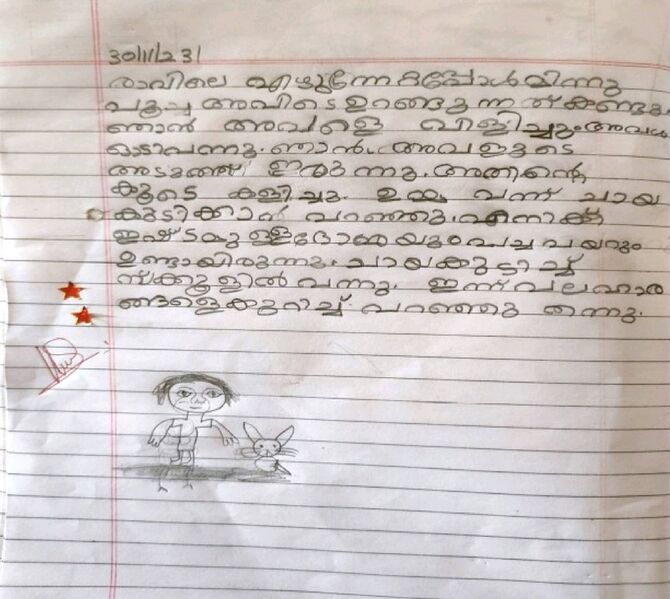 30/11/23
രാവിലെ എഴുന്നേറ്റപ്പോൾ മിന്നു
പൂച്ച അവിടെ ഉറങ്ങുന്നത് കണ്ടു
ഞാൻ അവളെ വിളിച്ചു അവൾ
ഓടിവന്നു. ഞാൻ അവളുടെ
അടുത്ത് ഇരുന്നു. അതിന്റെ
കൂടെ കളിച്ചു. ഉമ്മ വന്ന് ചായ
കുടിക്കാൻ പറഞ്ഞു. എനിക്ക്
ഇഷ്ടമുള്ള ദോശയും പച്ച പയറും
ഉണ്ടായിരുന്നു. ചായകുടിച്ച്
സ്ക്കൂളിൽ വന്നു. ഇന്ന് പലഹാര
ങ്ങളെകുറിച്ച് പറഞ്ഞു തന്നു.